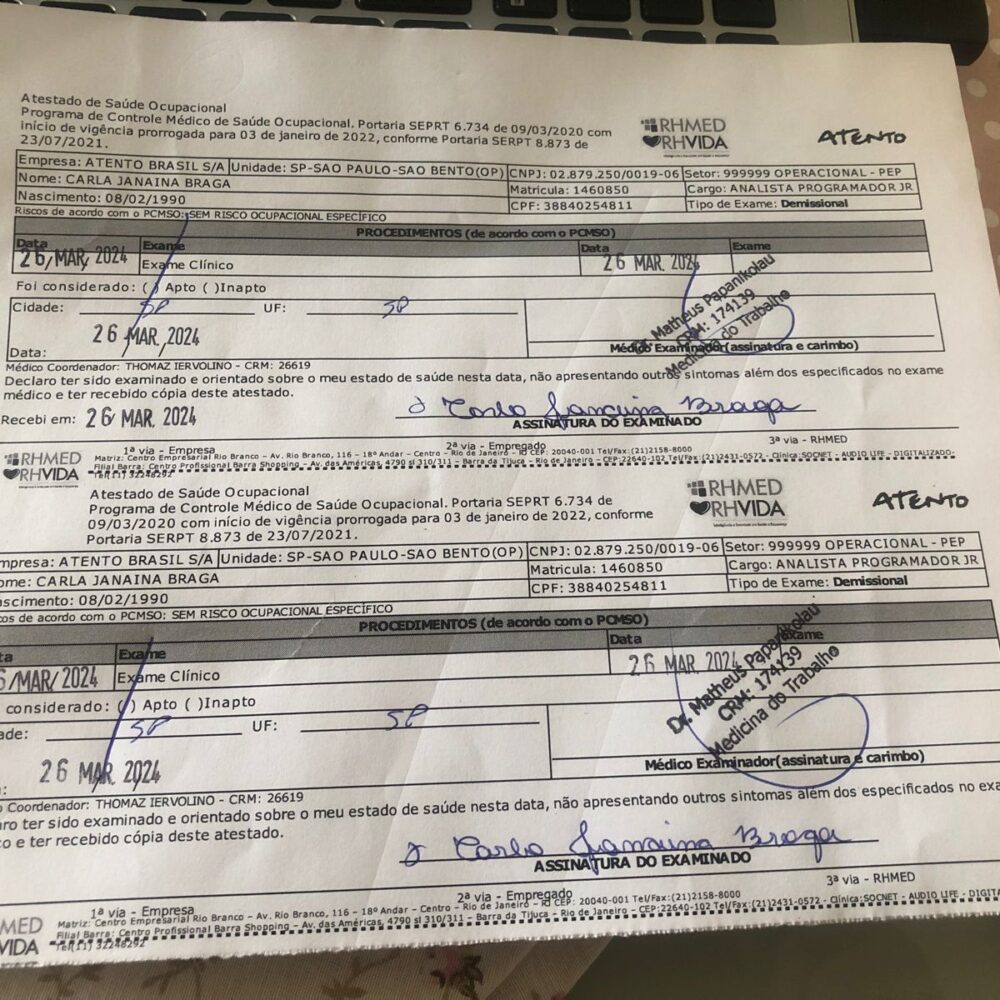 Atestado de Saúde Ocupacional
Programa de Controle Médico de Saúde Ocupacional. Portaria SEPRT 6.734 de 09/03/2020 com
início de vigência prorrogada para 03 de janeiro de 2022, conforme Portaria SERPT 8.873 de
23/07/2021.
RHMED
RHVIDA
ATENTO
Empresa: ATENTO BRASIL S/A Unidade: SP-SAO PAULO-SAO BENTO(OP) CNPJ: 02.879.250/0019-06 Setor: 999999 OPERACIONAL - PEP
Nome: CARLA JANAINA BRAGA Matricula: 1460850 Cargo: ANALISTA PROGRAMADOR JR
Nascimento: 08/02/1990 CPF: 38840254811 Tipo de Exame: Demissional
Riscos de acordo com o PCMSO: SEM RISCO OCUPACIONAL ESPECÍFICO
PROCEDIMENTOS (de acordo com o PCMSO)
Data Exame Data Exame
26 MAR 2024 Exame Clínico 26 MAR. 2024
Foi considerado: ( ) Apto ( )Inapto
Cidade: SP UF: SP
Dr. Matheus Papanikolau
CRM: 174139
Medicina do Trabalho
26 MAR 2024
Data:
Médico Examinador(assinatura e carimbo)
Médico Coordenador: THOMAZ IERVOLINO - CRM: 26619
Declaro ter sido examinado e orientado sobre o meu estado de saúde nesta data, não apresentando outros sintomas além dos especificados no exame
médico e ter recebido cópia deste atestado.
Recebi em: 26 MAR. 2024
Carla Janaina Braga
ASSINATURA DO EXAMINADO
1ª via - Empresa 2ª via - Empregado 3ª via - RHMED
RHMED
RHVIDA
Matriz: Centro Empresarial Rio Branco - Av. Rio Branco, 116 - 18º Andar - Centro - Rio de Janeiro - RJ CEP: 20040-001 Tel/Fax:(21)2158-8000
Filial Barra: Centro Profissional Barra Shopping - Av. das Américas, 4790 sl 310/311 - Barra da Tijuca - Rio de Janeiro - CEP:22640-102 Tel/Fax:(21)2431-0572 - Clínica:SOCNET - AUDIO LIFE - DIGITALIZADO.
Tel(11) 32248292
Atestado de Saúde Ocupacional
Programa de Controle Médico de Saúde Ocupacional. Portaria SEPRT 6.734 de
09/03/2020 com início de vigência prorrogada para 03 de janeiro de 2022, conforme
Portaria SERPT 8.873 de 23/07/2021.
RHMED
RHVIDA
ATENTO
mpresa: ATENTO BRASIL S/A Unidade: SP-SAO PAULO-SAO BENTO(OP) CNPJ: 02.879.250/0019-06 Setor: 999999 OPERACIONAL - PEP
ome: CARLA JANAINA BRAGA Matricula: 1460850 Cargo: ANALISTA PROGRAMADOR JR
ascimento: 08/02/1990 CPF: 38840254811 Tipo de Exame: Demissional
os de acordo com o PCMSO: SEM RISCO OCUPACIONAL ESPECÍFICO
PROCEDIMENTOS (de acordo com o PCMSO)
ta Exame Data Exame
6/MAR/2024 Exame Clínico 26 MAR. 2024
considerado: ( ) Apto ( )Inapto
ade: SP UF: SP
Dr. Matheus Papanikolau
CRM: 174139
Medicina do Trabalho
26 MAR 2024
Médico Examinador(assinatura e carimbo)
o Coordenador: THOMAZ IERVOLINO - CRM: 26619
aro ter sido examinado e orientado sobre o meu estado de saúde nesta data, não apresentando outros sintomas além dos especificados no exa
co e ter recebido cópia deste atestado.
Carla Janaina Braga
ASSINATURA DO EXAMINADO
1ª via - Empresa 2ª via - Empregado 3ª via - RHMED
MED
VIDA
Matriz: Centro Empresarial Rio Branco - Av. Rio Branco, 116 - 18º Andar - Centro - Rio de Janeiro - RJ CEP: 20040-001 Tel/Fax:(21)2158-8000
Filial Barra: Centro Profissional Barra Shopping - Av. das Américas, 4790 sl 310/311 - Barra da Tijuca - Rio de Janeiro - CEP:22640-102 Tel/Fax:(21)2431-0572 - Clínica:SOCNET - AUDIO LIFE - DIGITA
Tel(11) 32248292